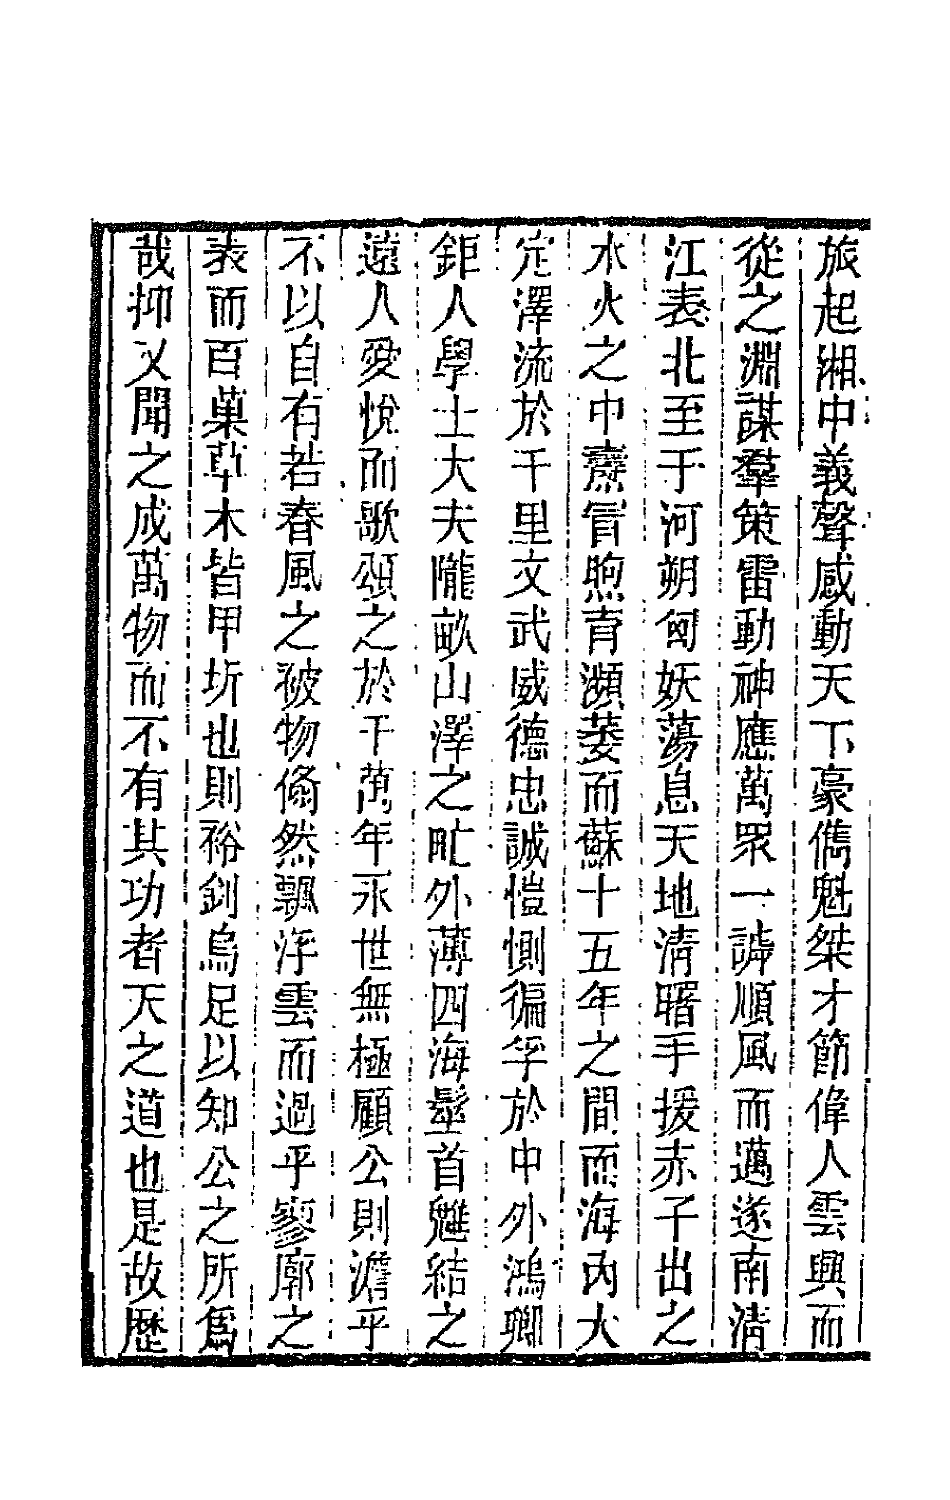 旅起湘中義聲感動天下豪儁魁桀才節偉人雲興而
從之淵謀羣策雷動神應萬眾一謼順風而邁遂南清
江表北至于河朔匈妖蕩息天地清曙手援赤子出之
水火之中燾冒煦育瀕萎而蘇十五年之間而海內大
定澤流於千里文武威德忠誠愷惻徧孚於中外鴻卿
鉅人學士大夫隴畝山澤之甿外薄四海髽首魋結之
遠人愛悅而歌頌之於千萬年永世無極顧公則澹乎
不以自有若春風之被物翛然飄浮雲而過乎寥廓之
表而百菓草木皆甲坼也則裕釗烏足以知公之所爲
哉抑又聞之成萬物而不有其功者天之道也是故歷